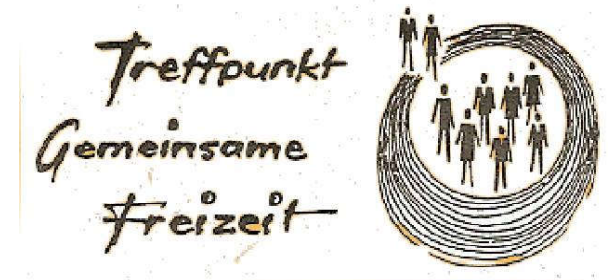 Treffpunkt
Gemeinsame
Freizeit